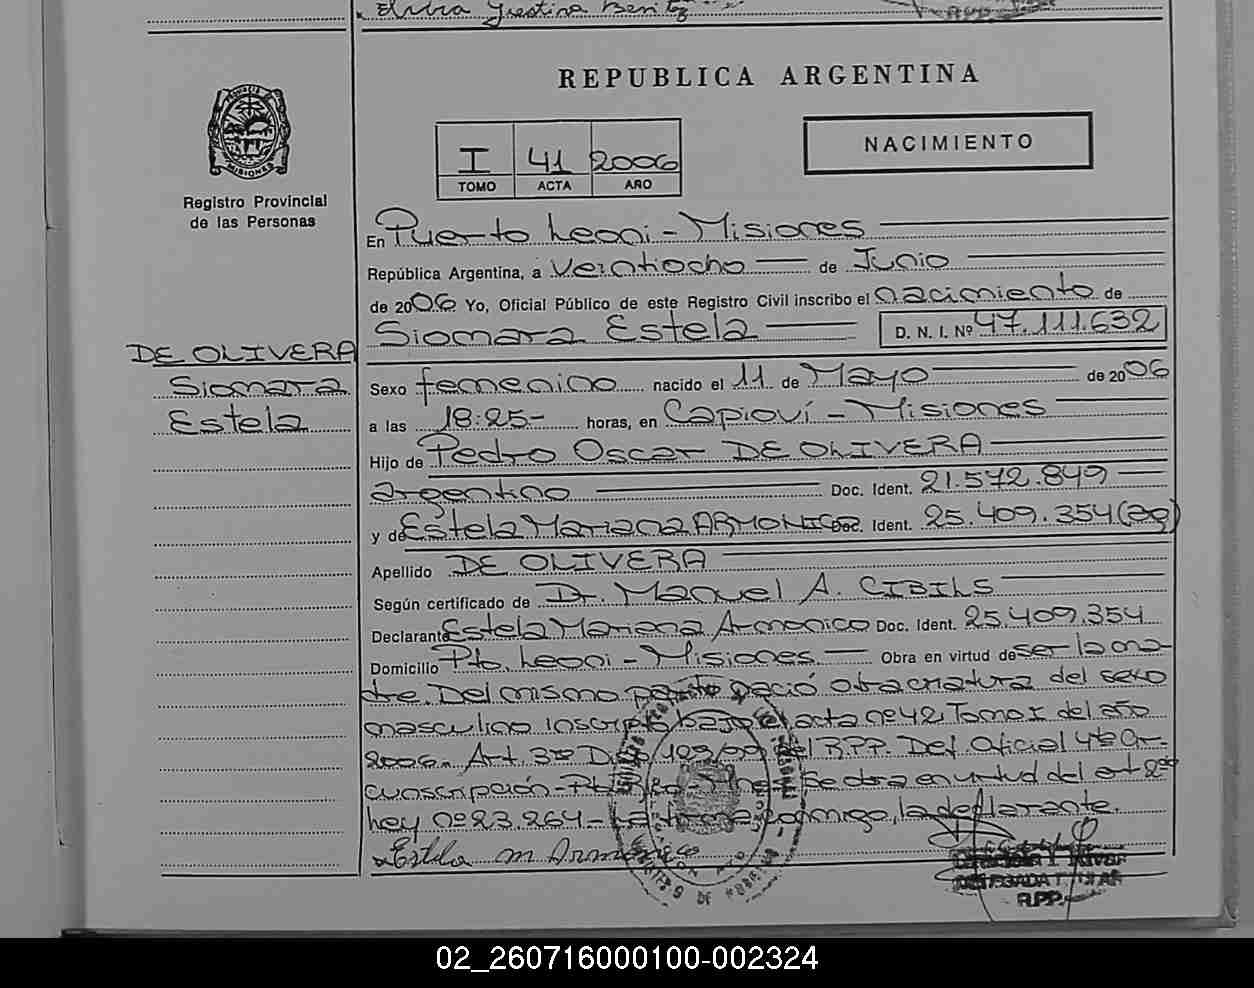 Elvira Justina Benitez
REPUBLICA ARGENTINA
I 41 2006
TOMO ACTA AÑO
NACIMIENTO
MISIONES
Registro Provincial
de las Personas
En Puerto Leoni - Misiones
República Argentina, a veintiocho de Junio
de 2006 Yo, Oficial Público de este Registro Civil inscribo el nacimiento de
Siomara Estela D. N. I. Nº 47.111.632
DE OLIVERA
Siomara
Estela
Sexo femenino nacido el 11 de Mayo de 2006
a las 18:25- horas, en Capioví - Misiones
Hijo de Pedro Oscar DE OLIVERA
argentino Doc. Ident. 21.572.849
y de Estela Mariana ARMONICO Doc. Ident. 25.409.354 (ag)
Apellido DE OLIVERA
Según certificado de Dr. Manuel A. CIBILS
Declarante Estela Mariana Armonico Doc. Ident. 25.409.354
Domicilio Pto. Leoni - Misiones Obra en virtud de ser la ma-
dre. Del mismo parto nació otra criatura del sexo
masculino inscripto bajo el acta nº 42, Tomo I del año
2006. Art. 3º 199/99 del R.P.P. Del. Oficial 4ta Cir-
cunscripción - Se obra en virtud del art 2do
ley nº 23.264 - La firma conmigo, la declarante.
Estela M Armonico
DELEGADA TITULAR
R.P.P.
02_260716000100-002324